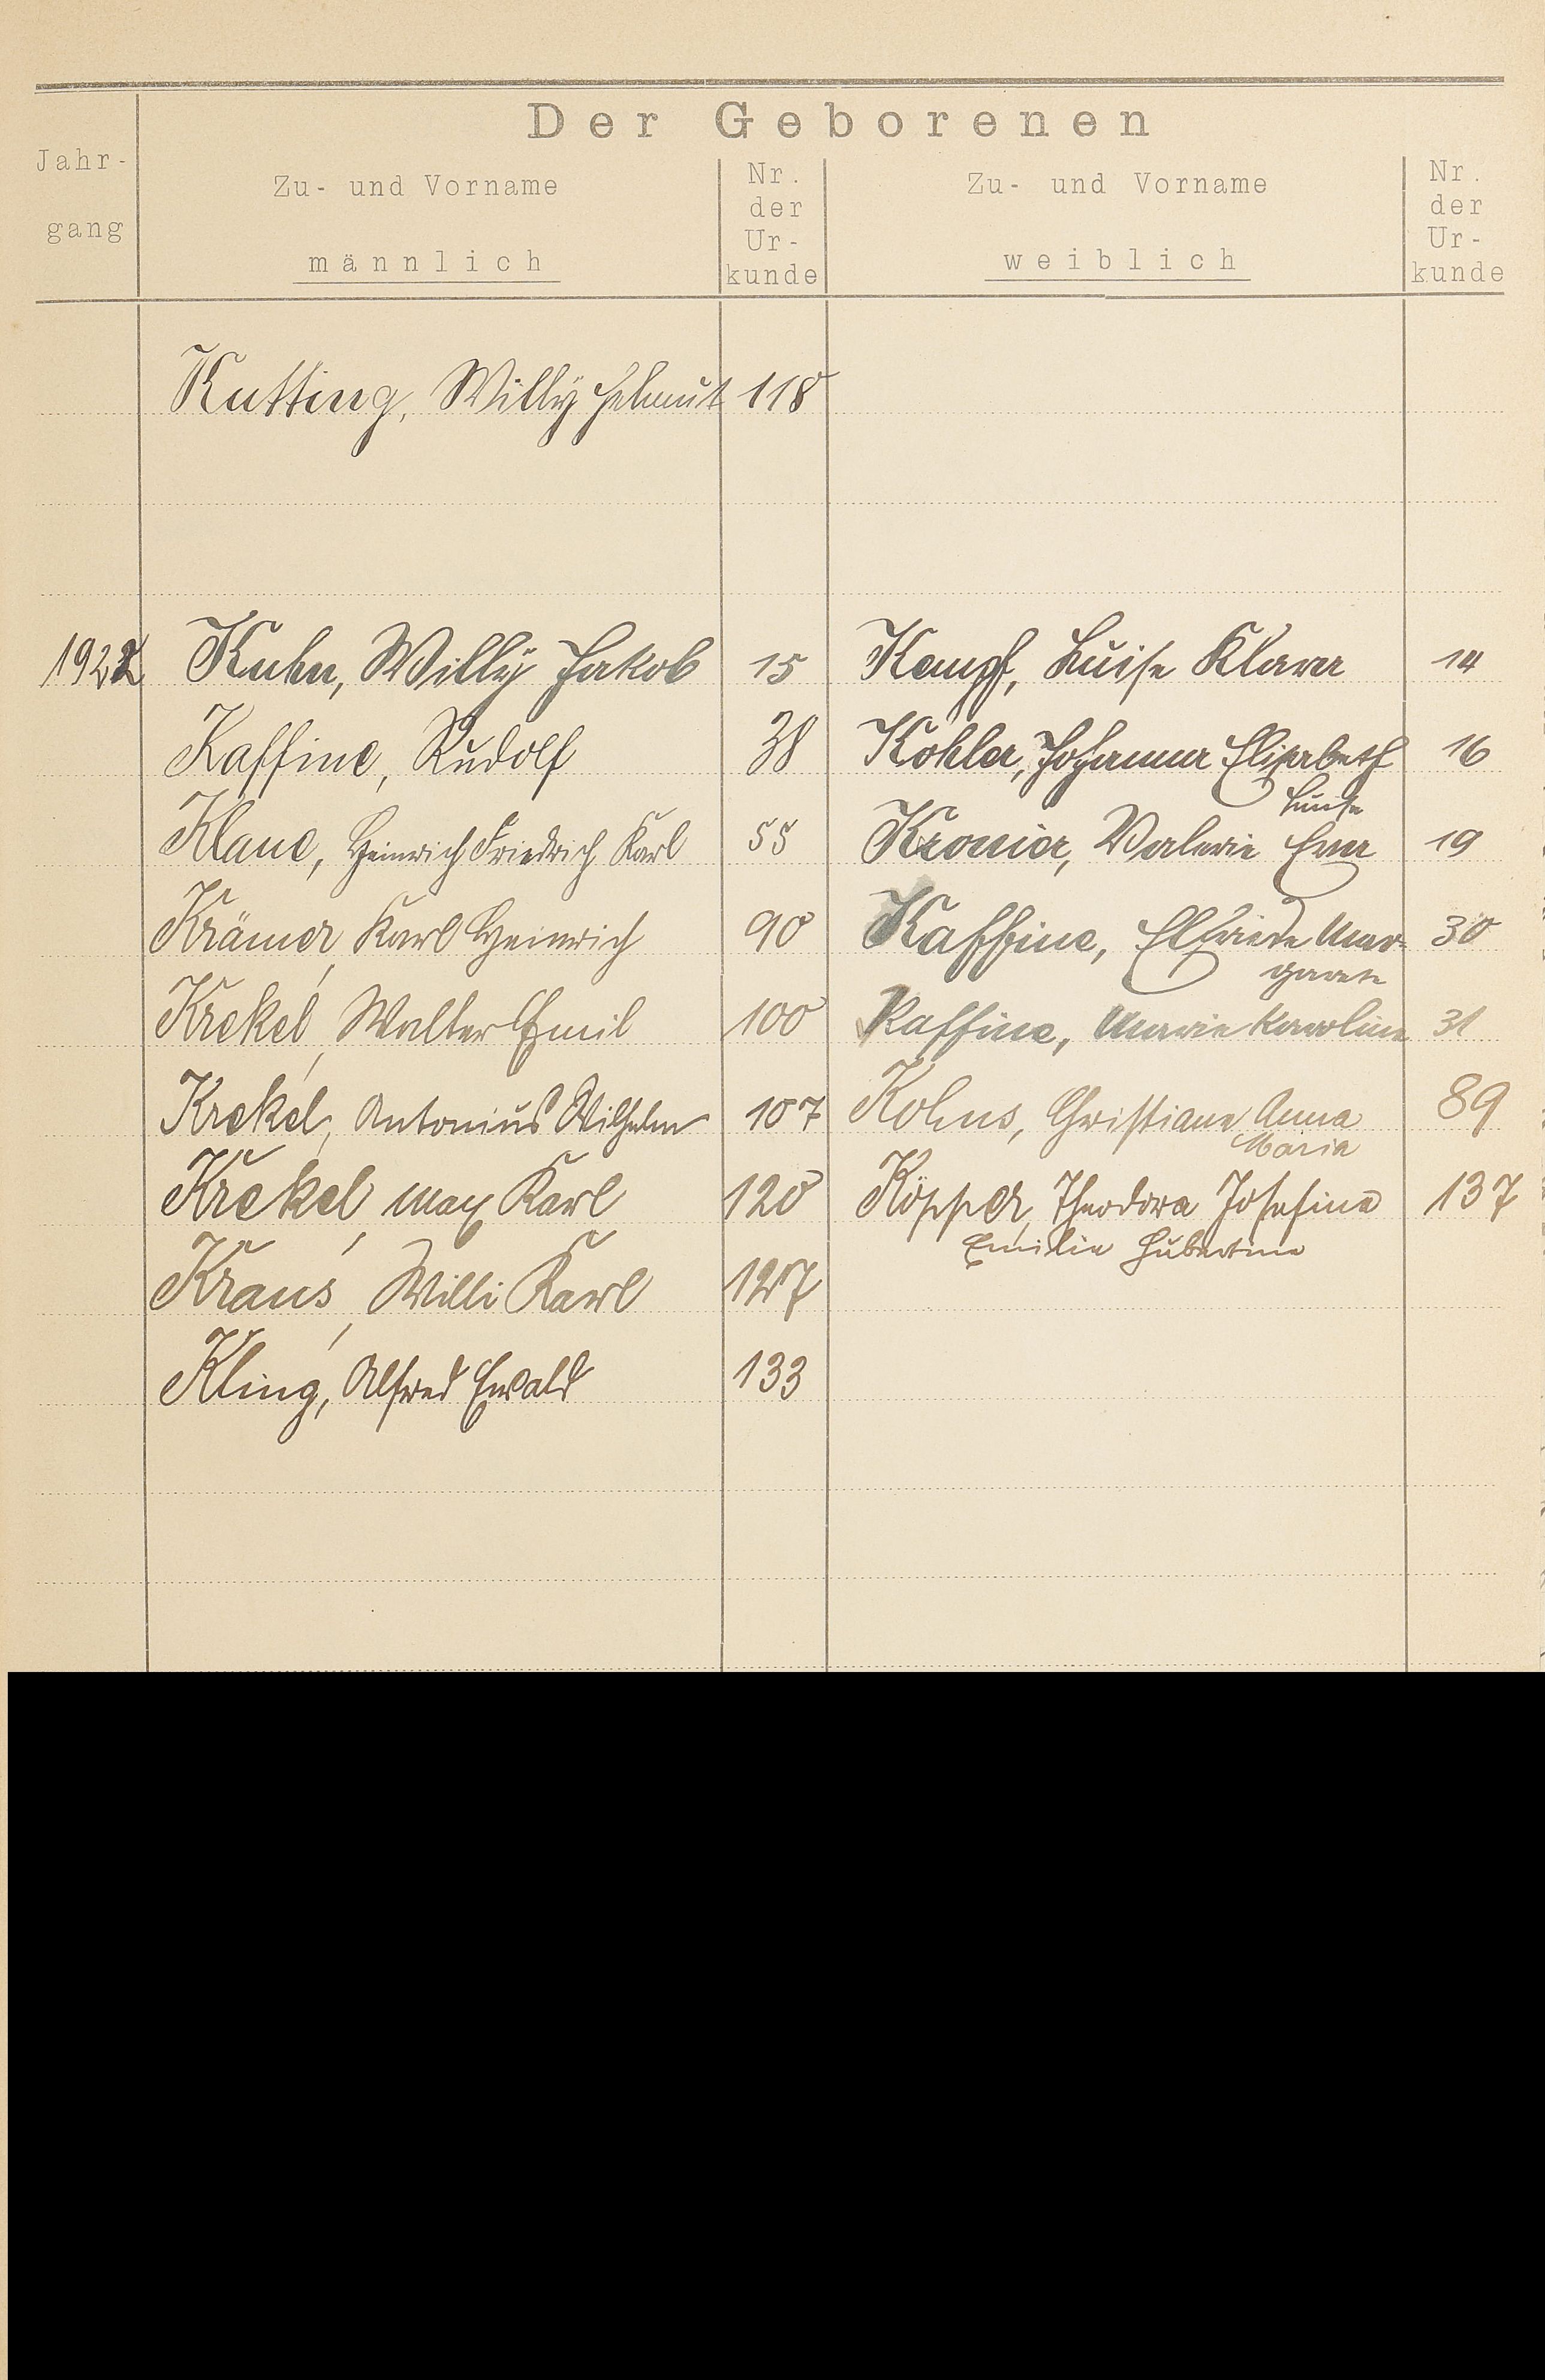 Der Geborenen
Jahr-
gang
Zu- und Vorname
männlich
Nr.
der
Ur-
kunde
Zu- und Vorname
weiblich
Nr.
der
Ur-
kunde
Kutting, Willy Helmut 118
1922 Kuhn, Willy Jakob 15 Kempf, Luise Klara 14
Kaffine, Rudolf 38 Köhler, Johanna Elisabeth 16
Luise
Klaue, Heinrich Friedrich Karl 55 Kronier, Valerie Erna 19
Krämer, Karl Heinrich 90 Kaffine, Elfriede Mar- 30
garete
Krekel, Walter Emil 100 Kaffine, Marie Karoline 31
Krekel, Antonius Wilhelm 107 Kohns, Christiane Anna 89
Maria
Krekel, Max Karl 120 Köpper, Theodora Josefine 137
Emilie Hubertine
Kraus, Willi Karl 127
Kling, Alfred Ewald 133